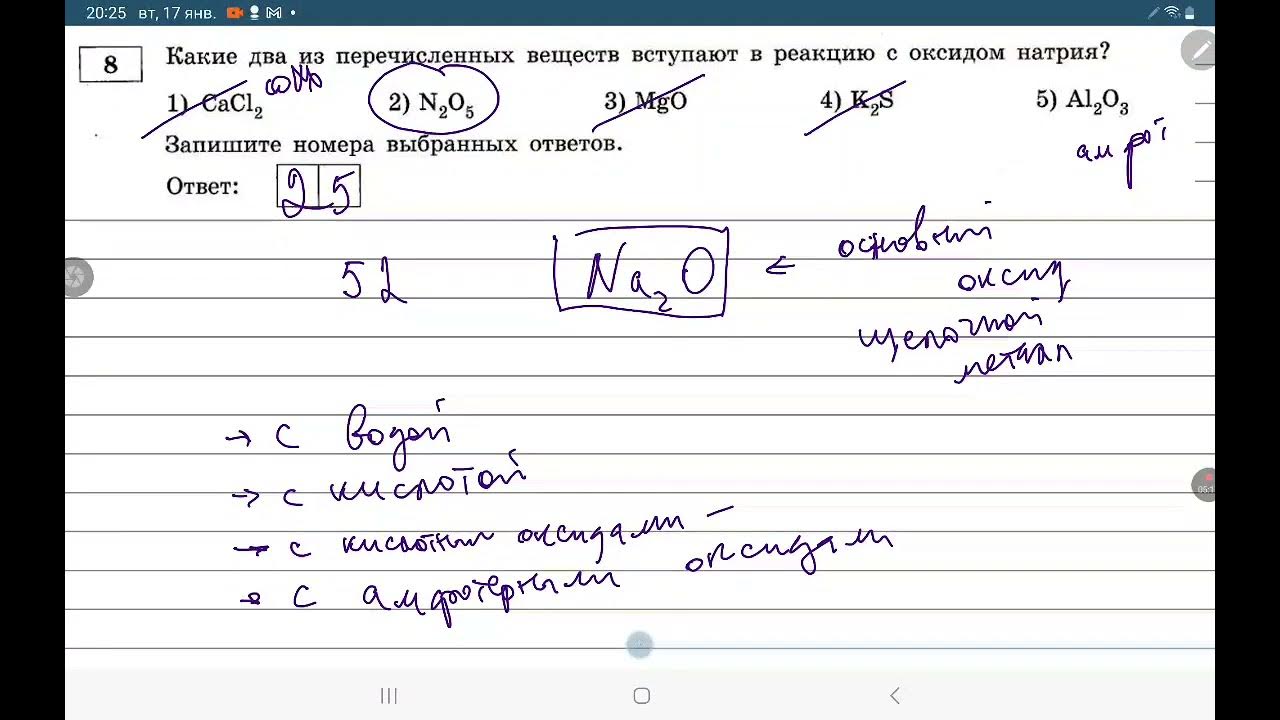 20:25 вт, 17 янв.
8 Какие два из перечисленных веществ вступают в реакцию с оксидом натрия?
соль
1) CaCl₂ 2) N₂O₅ 3) MgO 4) K₂S 5) Al₂O₃
Запишите номера выбранных ответов.
Ответ: 25
52
Na₂O ←
основный
оксид
щелочной
металл
→ с водой
→ с кислотой
→ с кислотным оксидами –
→ с амфотерными оксидами